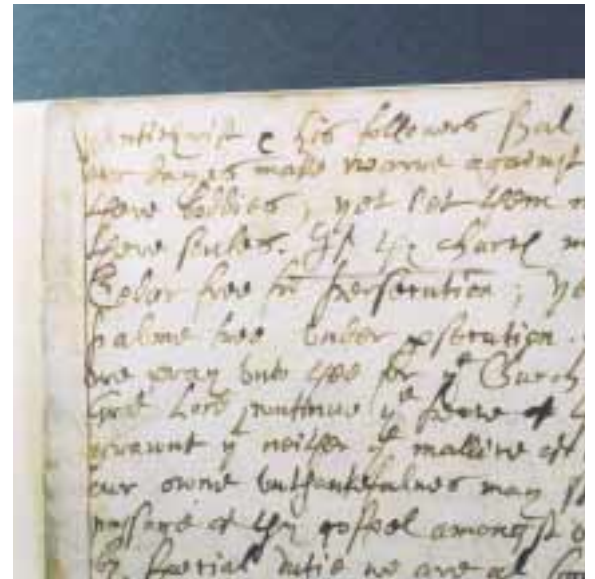 Antichrist & his followers shal
our dayes make warre against
there bodies, yet let them n
there soules. If thy church m
Cedar free fro persecution, ye
palme tree under psecution.
we pray unto thee for yᵉ Church
Good Lord continue yᵉ
graunt yᵗ neither yᵉ mallice of
our owne unthankefulnes may
passage of thy gospel amongst
by speciall dutie we are al